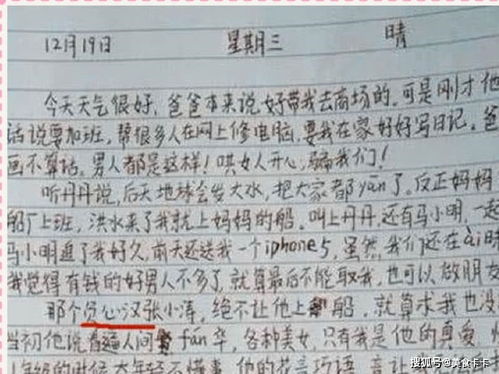 12月19日 星期三 晴
今天天气很好，爸爸本来说好带我去商场的。可是刚才他
话说要加班，帮很多人在网上修电脑，要我在家好好写日记。爸
画不算话。男人都是这样！哄女人开心，骗我们！
听丹丹说，后天地球会发大水，把大家都yān了，反正妈妈
船厂上班，洪水来了我就上妈妈的船。叫上丹丹，还有马小明，一走
马小明追了我好久，前天还送我一个iphone5，虽然我们还在ài时
我觉得有钱的好男人不多了，就算最后不能取我，也可以做朋友
那个负心汉张小涛，绝不让他上船，就算求我也没
当初他说看遍人间fán华，各种美女，只有我是他的真爱，
的时候大年轻不懂事，他的花言巧语，竟让
搜狐号@美食卡卡